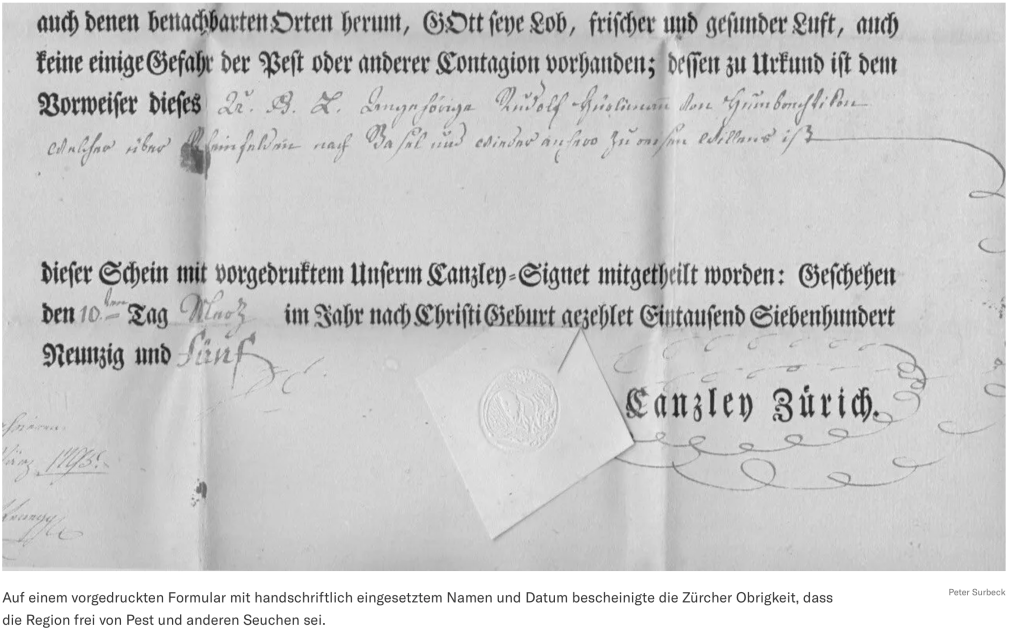 auch denen benachbarten Orten herum, GOtt seye Lob, frischer und gesunder Luft, auch
keine einige Gefahr der Pest oder anderer Contagion vorhanden; dessen zu Urkund ist dem
Vorweiser dieses Rudolf von
welcher über Rheinfelden nach Basel und wieder anhero zu reisen willens ist
dieser Schein mit vorgedruktem Unserm Canzley-Signet mitgetheilt worden: Geschehen
den 10. Tag Merz im Jahr nach Christi Geburt gezehlet Eintausend Siebenhundert
Neunzig und fünf
Canzley Zürich.
1795.
Auf einem vorgedruckten Formular mit handschriftlich eingesetztem Namen und Datum bescheinigte die Zürcher Obrigkeit, dass
die Region frei von Pest und anderen Seuchen sei.
Peter Surbeck